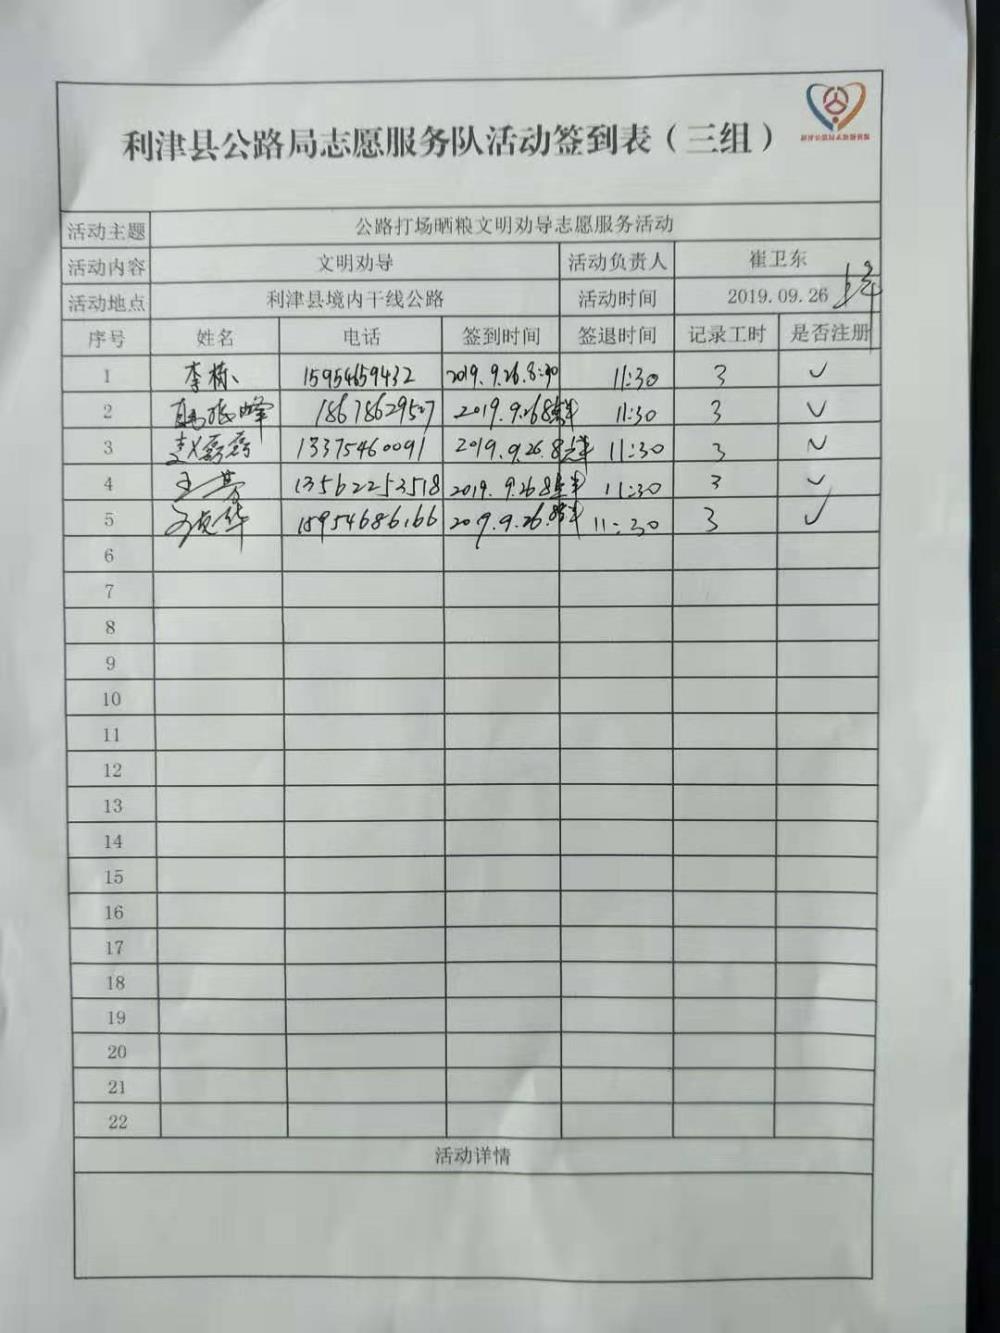 利津县公路局志愿服务队活动签到表（三组）
活动主题 公路打场晒粮文明劝导志愿服务活动
活动内容 文明劝导 活动负责人 崔卫东
活动地点 利津县境内干线公路 活动时间 2019.09.26 上午
序号 姓名 电话 签到时间 签退时间 记录工时 是否注册
1 李栋 15954659432 2019.9.26.8:30 11:30 3 ✓
2 18678629507 2019.9.26 8点半 11:30 3 ✓
3 赵磊磊 13375460091 2019.9.26.8点半 11:30 3 ✓
4 王芳 13562253518 2019.9.26 8点半 11:30 3 ✓
5 15954686166 2019.9.26.8点半 11:30 3 ✓
6
7
8
9
10
11
12
13
14
15
16
17
18
19
20
21
22
活动详情